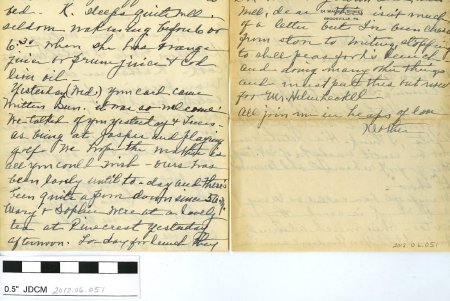 bed. K. sleeps quite well
seldom wakening before 6 or
6:30 when she has orange
juice or prune juice & cod
liver oil -
Yesterday (Wed.) your card came
written Sun. it was so welcome
We talked of you yesterday &
as being at Jasper and playing
golf We hope the weather is
all you could wish - ours has
been lovely until to-day and there's
been quite a down since
Mary & Sophie were at a lovely
tea at Pinecrest yesterday
afternoon. To-day for lunch they
Well, dear this isn't much
of a letter but I've been
from to writing stopping
to shell peas for K's lunch
and doing many other things
and must put this out now
for Mr.
All join me in heaps of love
0.5" JDCM 2012.06.051
2012.06.051